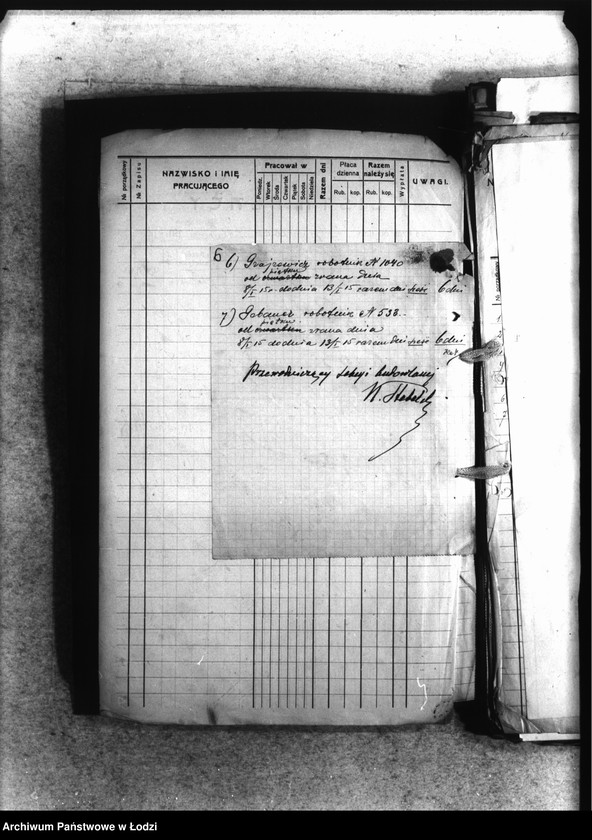 № porządkowy
№ Zapisu
NAZWISKO I IMIĘ
PRACUJĄCEGO
Pracował w
Poniedz.
Wtorek
Środa
Czwartek
Piątek
Sobota
Niedziela
Razem dni
Płaca
dzienna
Rub. kop.
Razem
należy się
Rub. kop.
Wypłata
UWAGI.
6
6) Grajrowicz robotnik № 1040
piątku
od czwartku zrana dnia
8/I 15 r. do dnia 13/I 15 razem dni sześć 6 dni
7) Gebauer robotnik № 538.
piątku
od czwartku zrana dnia
8/I 15 do dnia 13/I 15 razem dni sześć 6 dni
Przewodniczący Sekcji budowlanej
Archiwum Państwowe w Łodzi